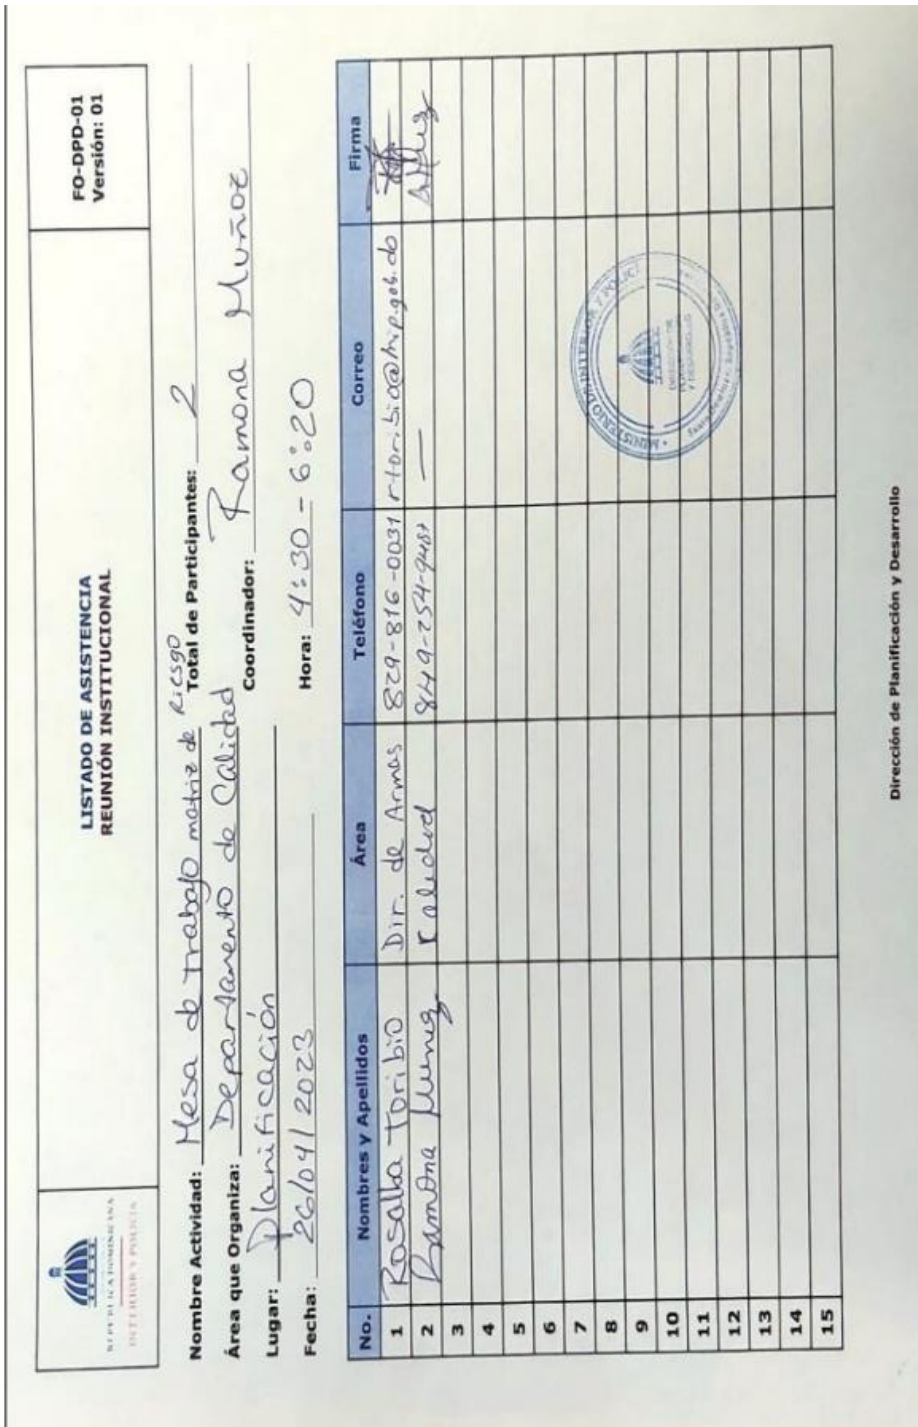 REPÚBLICA DOMINICANA
INTERIOR Y POLICÍA
LISTADO DE ASISTENCIA
REUNIÓN INSTITUCIONAL
FO-DPD-01
Versión: 01
Nombre Actividad: Mesa de trabajo matriz de Riesgo Total de Participantes: 2
Área que Organiza: Departamento de Calidad
Coordinador: Ramona Muñoz
Lugar: Planificación
Fecha: 26/04/2023 Hora: 4:30 - 6:20
No. Nombres y Apellidos Área Teléfono Correo Firma
1 Rosalba Toribio Dir. de Armas 829-816-0031 rtoribio@mip.gob.do
2 Ramona Munoz Calidad 849-254-9481 —
3
4
5
6
7
8
9
10
11
12
13
14
15
MINISTERIO DE INTERIOR Y POLICÍ
DIRECCIÓN DE
PLANIFICACIÓN
Y DESARROLLO
Dirección de Planificación y Desarrollo